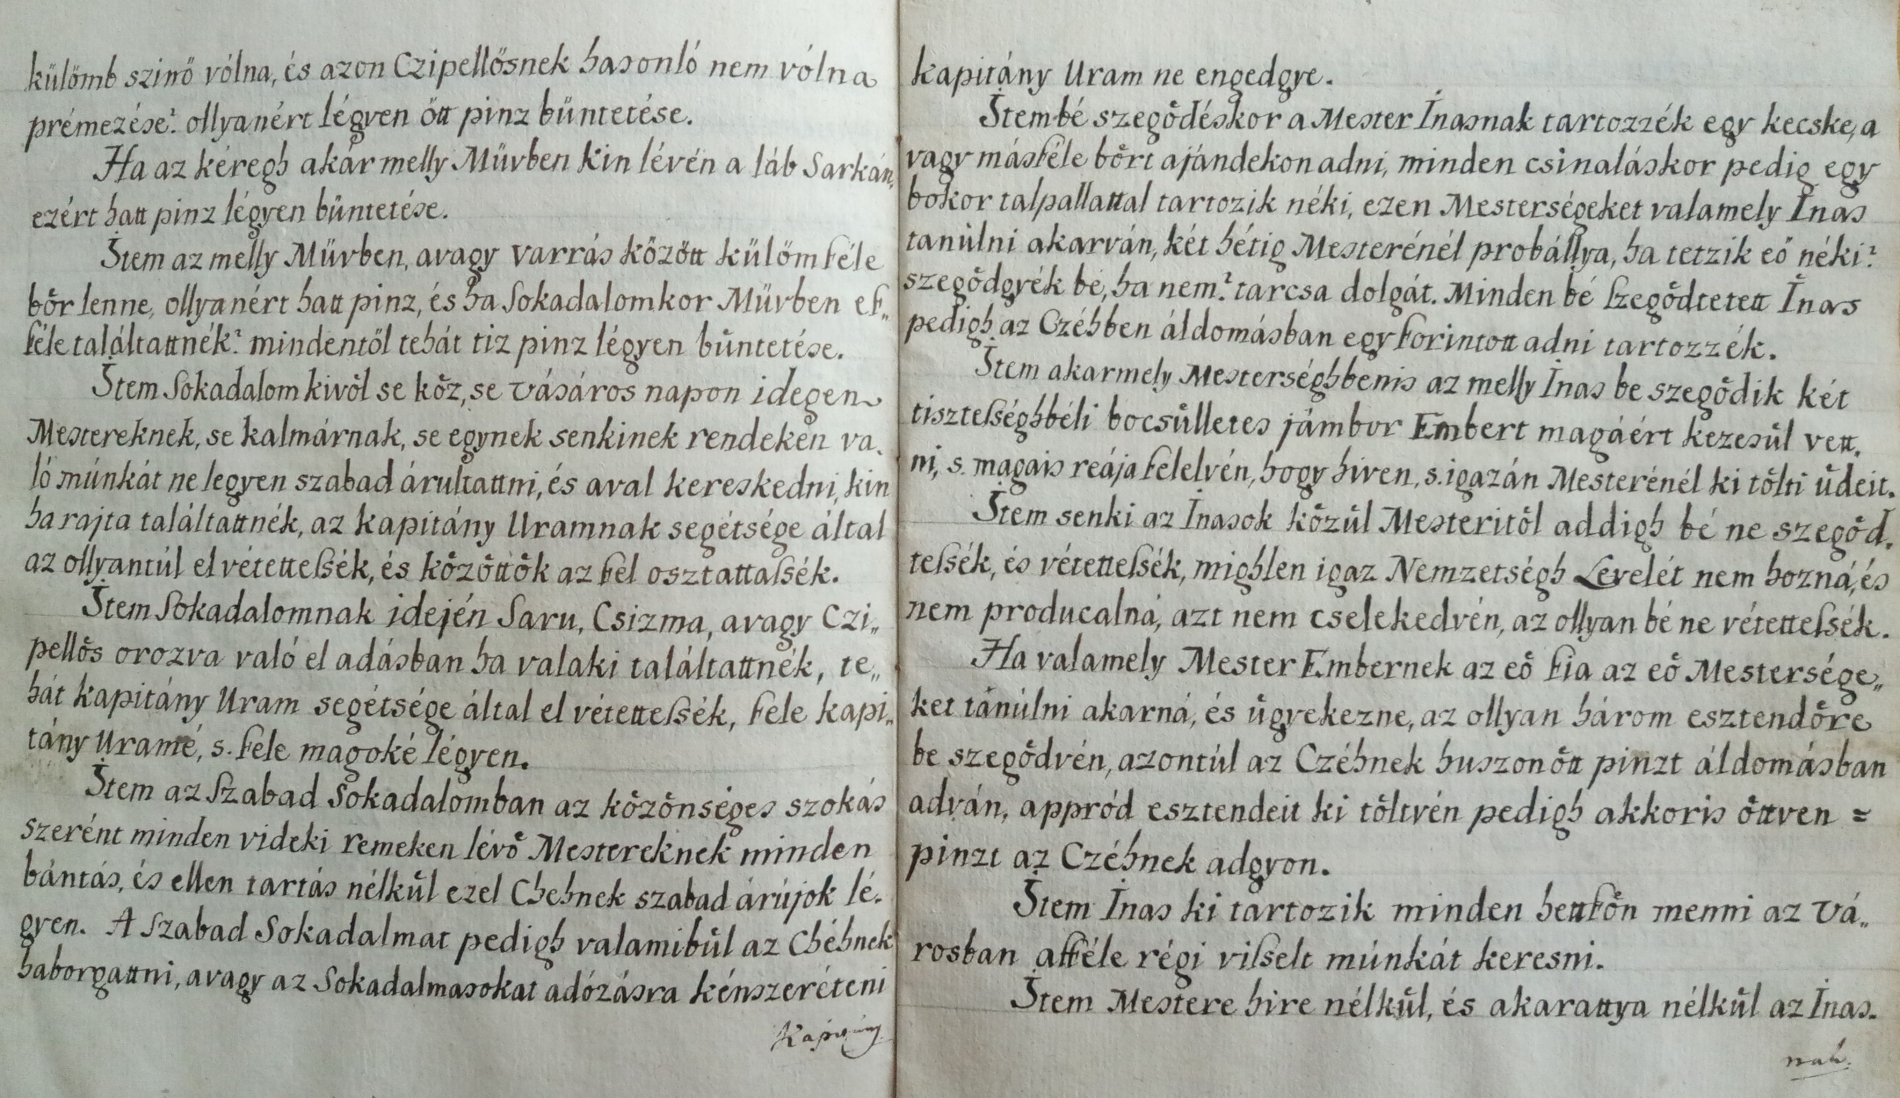 külömb szinő vólna, és azon Czipellősnek hasonló nem vólna
prémezése? ollyanért légyen ött pinz büntetése.
Ha az kéregh akár melly Müvben kin lévén a láb Sarkán,
ezért hatt pinz légyen büntetése.
Item az melly Müvben, avagy varrás között külömféle
bőr lenne, ollyanért hatt pinz, és ha Sokadalomkor Müvben ef„
féle találtattnék? mindentöl tehát tiz pinz légyen büntetése.
Item Sokadalom kivöl se köz, se vásáros napon idegen
Mestereknek, se kalmárnak, se egynek senkinek rendeken va„
ló múnkát ne legyen szabad árultattni, és aval kereskedni, kin
ha rajta találtattnék, az kapitány Uramnak segétsége által
az ollyantúl el vétettessék, és közöttök az fél osztattassék.
Item Sokadalomnak idején Saru, Csizma, avagy Czi„
pellős orozva való el adásban ha valaki találtattnék, te„
hát kapitány Uram segétsége által el vétettessék, fele kapi„
tány Uramé, s. fele magoké légyen.
Item az Szabad Sokadalomban az közönséges szokás
szerént minden videki remeken lévő Mestereknek minden
bántás, és ellen tartás nélkül ezel Chehnek szabad árújok lé„
gyen. A Szabad Sokadalmat pedigh valamibül az Chéhnek
haborgattni, avagy az Sokadalmasokat adózásra kénszeréteni
Kapitány
kapitány Uram ne engedgye.
Item bé szegödéskor a Mester Inasnak tartozzék egy kecske, a
vagy másféle bört ajándekon adni, minden csinaláskor pedig egy
bokor talpallattal tartozik néki, ezen Mesterségeket valamely Inas
tanúlni akarván, két hétig Mesterénél probállya, ha tetzik eö néki?
szegödgyék bé, ha nem? tarcsa dolgát. Minden bé szegödtetett Inas
pedigh az Czéhben áldomásban egy forintott adni tartozzék.
Item akarmely Mesterséghbenis az melly Inas be szegödik két
tisztességhbéli bocsülletes jámbor Embert magáért kezesül vett„
ni, s. magais reája felelvén, hogy hiven, s. igazán Mesterénél ki tölti üdeit.
Item senki az Inasok közül Mesteritöl addigh bé ne szegöd„
tessék, és vétettessék, mighlen igaz Nemzetségh Levelét nem hozná, és
nem producalná, azt nem cselekedvén, az ollyan bé ne vétettessék.
Ha valamely Mester Embernek az eö fia az eö Mestersége„
ket tánúlni akarná, és ügyekezne, az ollyan három esztendöre
be szegödvén, azontúl az Czéhnek huszonött pinzt áldomásban
adván, appród esztendeit ki töltvén pedigh akkoris öttven =
pinzt az Czéhnek adgyon.
Item Inas ki tartozik minden hettfön menni az Vá„
rosban afféle régi visselt múnkát keresni.
Item Mestere hire nélkül, és akarattya nélkül az Inas„
nak